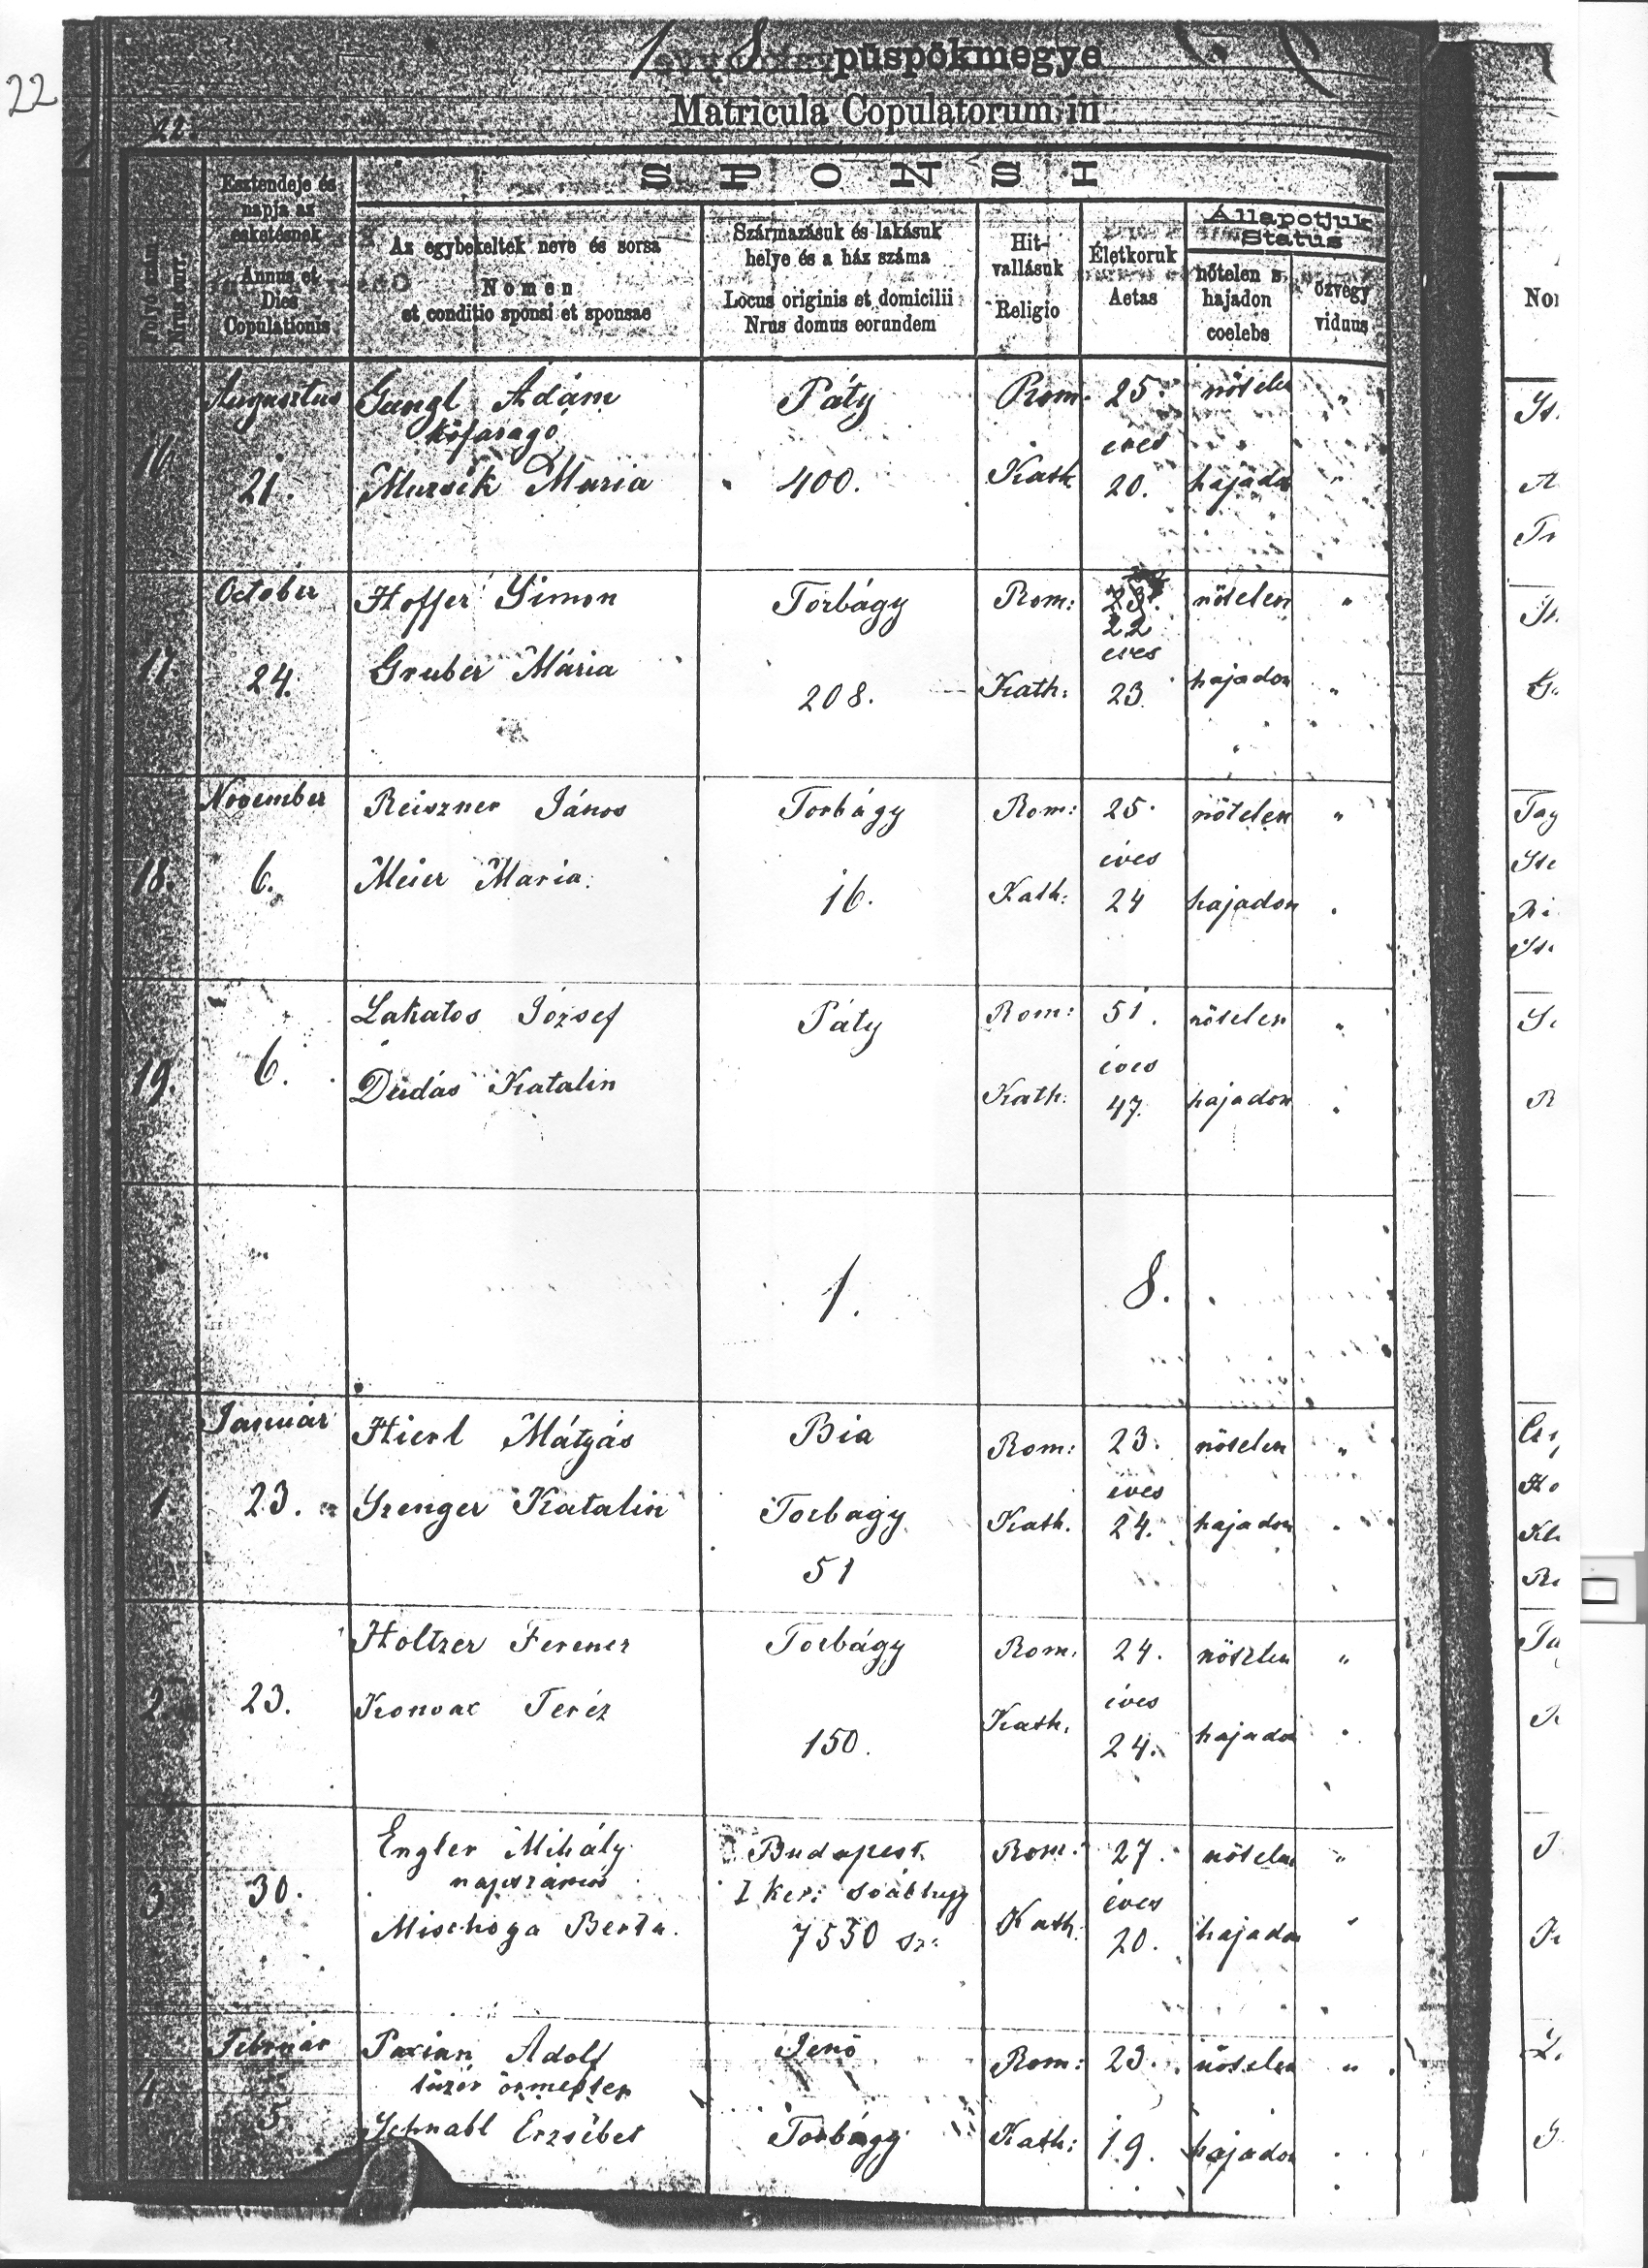 22
püspökmegye
Matricula Copulatorum in
22.
SPONSI
Folyó szám
Nrus curr.
Esztendeje és
napja az
esketésnek
Annus et
Dies
Copulationis
Az egybekeltek neve és sorsa
Nomen
et conditio sponsi et sponsae
Származásuk és lakásuk
helye és a ház száma
Locus originis et domicilii
Nrus domus eorundem
Hit-
vallásuk
Religio
Életkoruk
Aetas
Állapotjuk
Status
nőtelen s
hajadon
coelebs
özvegy
viduus
Augusztus Gangl Adám Páty Rom. 25. nötelen "
kőfaragó éves
16. 21. Maria 400. Kath 20. hajadon "
October Hoffer Simon Torbágy Rom: 23. nötelen "
22
éves
17. 24. Gruber Mária 208. Kath: 23. hajadon "
November Reiszner János Torbágy Rom: 25. nötelen "
éves
18. 6. Meier Maria. 16. Kath: 24 hajadon "
Lakatos József Páty Rom: 51. nötelen "
éves
19. 6. Dudás Katalin Kath: 47. hajadon "
1. 8.
Január Hierl Mátyás Bia Rom: 23. nötelen "
éves
1. 23. Szenger Katalin Torbagy Kath. 24. hajadon "
51
Holtzer Ferencz Torbágy Rom. 24. nötelen "
éves
2. 23. Teréz 150. Kath. 24. hajadon "
Engler Mihály Budapest Rom. 27. nötelen "
napszámos I ker: svábhegy éves
3. 30. Mischoga Berta. 7550 sz: Kath. 20. hajadon "
Február Paxian Adolf Jenö Rom: 23. nötelen "
tüzér örmester
4. 5. Schnabl Erzsébet Torbágy Kath: 19. hajadon "